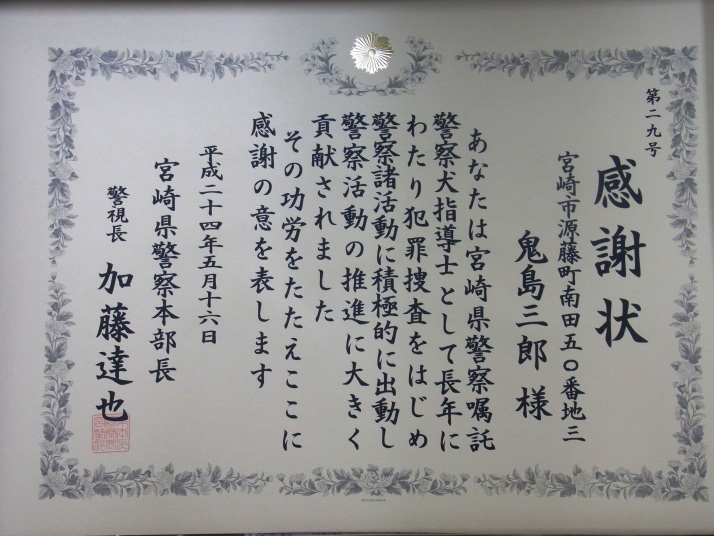 第二九号
感謝状
宮崎市源藤町南田五〇番地三
鬼島三郎様
あなたは宮崎県警察嘱託
警察犬指導士として長年に
わたり犯罪捜査をはじめ
警察諸活動に積極的に出動し
警察活動の推進に大きく
貢献されました
その功労をたたえここに
感謝の意を表します
平成二十四年五月十六日
宮崎県警察本部長
警視長 加藤達也